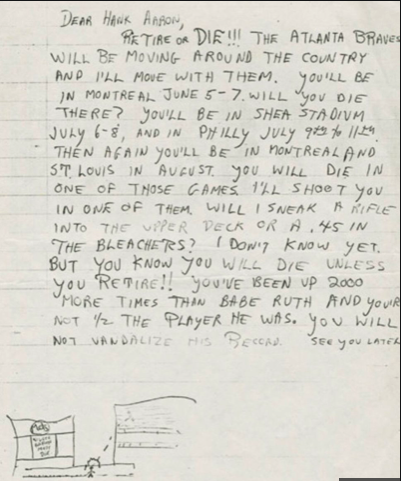 DEAR HANK AARON,
RETIRE OR DIE!!! THE ATLANTA BRAVES
WILL BE MOVING AROUND THE COUNTRY
AND I'LL MOVE WITH THEM. YOU'LL BE
IN MONTREAL JUNE 5-7. WILL YOU DIE
THERE? YOU'LL BE IN SHEA STADIUM
JULY 6-8, AND IN PHILLY JULY 9th to 11th.
THEN AGAIN YOU'LL BE IN MONTREAL AND
ST. LOUIS IN AUGUST. YOU WILL DIE IN
ONE OF THOSE GAMES. I'LL SHOOT YOU
IN ONE OF THEM. WILL I SNEAK A RIFLE
INTO THE UPPER DECK OR A .45 IN
THE BLEACHERS? I DON'T KNOW YET.
BUT YOU KNOW YOU WILL DIE UNLESS
YOU RETIRE!! YOU'VE BEEN UP 2000
MORE TIMES THAN BABE RUTH AND YOU'R
NOT 1/2 THE PLAYER HE WAS. YOU WILL
NOT VANDALIZE HIS RECORD. SEE YOU LATER